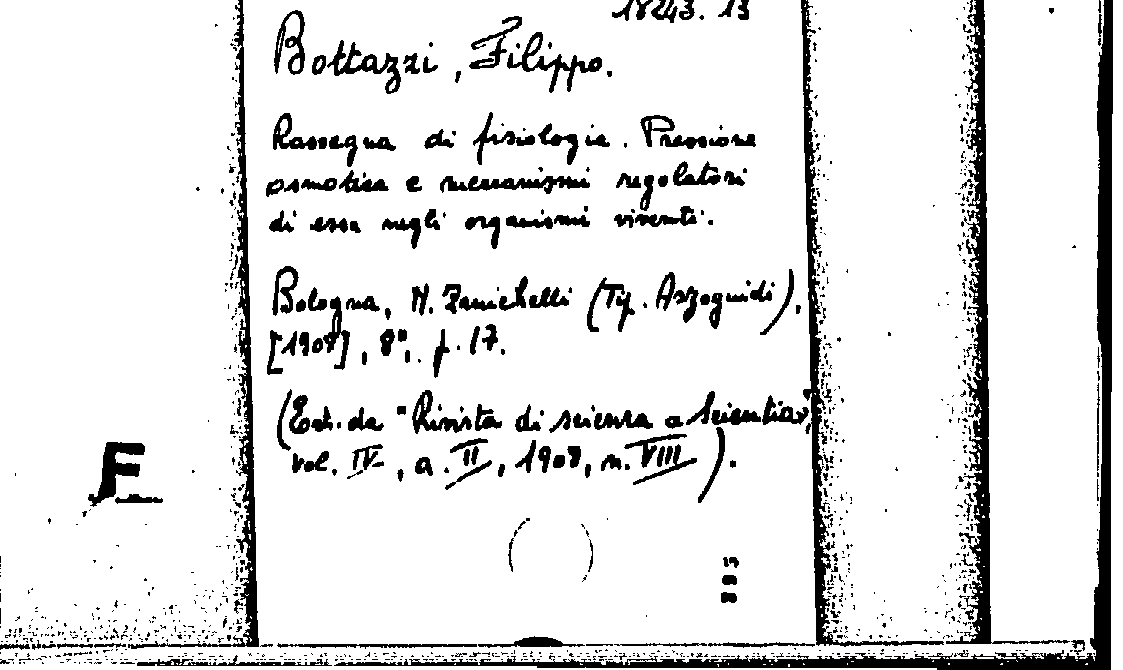 18243. 13
Bottazzi, Filippo.
Rassegna di fisiologia. Pressione
osmotica e meccanismi regolatori
di essa negli organismi viventi.
Bologna, N. Zanichelli (Tip. Azzoguidi).
[1908], 8°, p. 17.
(Estr. da "Rivista di scienza "Scientia",
vol. IV, a. II, 1908, n. VIII).
F